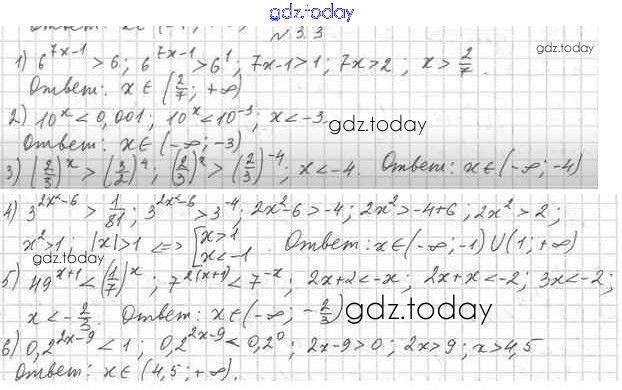 gdz.today
Ответ: x ∈ (-
№ 3.3
1) 6^(7x-1) > 6; 6^(7x-1) > 6^1; 7x-1 > 1; 7x > 2; x > 2/7.
gdz.today
Ответ: x ∈ (2/7; +∞)
2) 10^x < 0,001; 10^x < 10^(-3); x < -3
gdz.today
Ответ: x ∈ (-∞; -3)
3) (2/3)^x > (3/2)^4; (2/3)^x > (2/3)^(-4); x < -4. Ответ: x ∈ (-∞; -4)
4) 3^(2x²-6) > 1/81; 3^(2x²-6) > 3^(-4); 2x²-6 > -4; 2x² > -4+6; 2x² > 2;
x² > 1; |x| > 1 <=> [x > 1 x < -1. Ответ: x ∈ (-∞; -1) ∪ (1; +∞)
gdz.today
5) 49^(x+1) < (1/7)^x; 7^(2(x+1)) < 7^(-x); 2x+2 < -x; 2x+x < -2; 3x < -2;
x < -2/3. Ответ: x ∈ (-∞; -2/3)
gdz.today
6) 0,2^(2x-9) < 1; 0,2^(2x-9) < 0,2^0; 2x-9 > 0; 2x > 9; x > 4,5
Ответ: x ∈ (4,5; +∞).